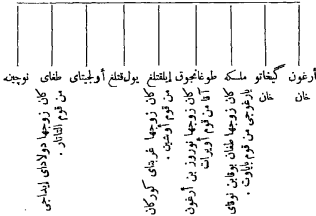 أرغون خان
گيخاتو خان
ملكه
كان زوجها طغان بوقا بن نوقاى يارغوجى من قوم باياوت .
طوغانجوق
كان زوجها نوروز بن أرغون آقا من قوم أويرات
ايلقتلغ
كان زوجها غربتاى كوركان من قوم أوشين .
يول قتلغ
أولجيتاى
طغاى
كان زوجها دولاداى ايداجى من قوم التاتار .
نوجين